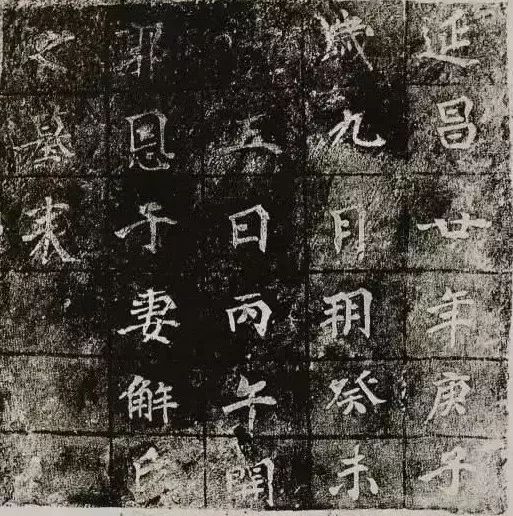 延昌廿年庚子
歲九月朔癸未
五日丙午開
邪恩子妻解氏
之墓表